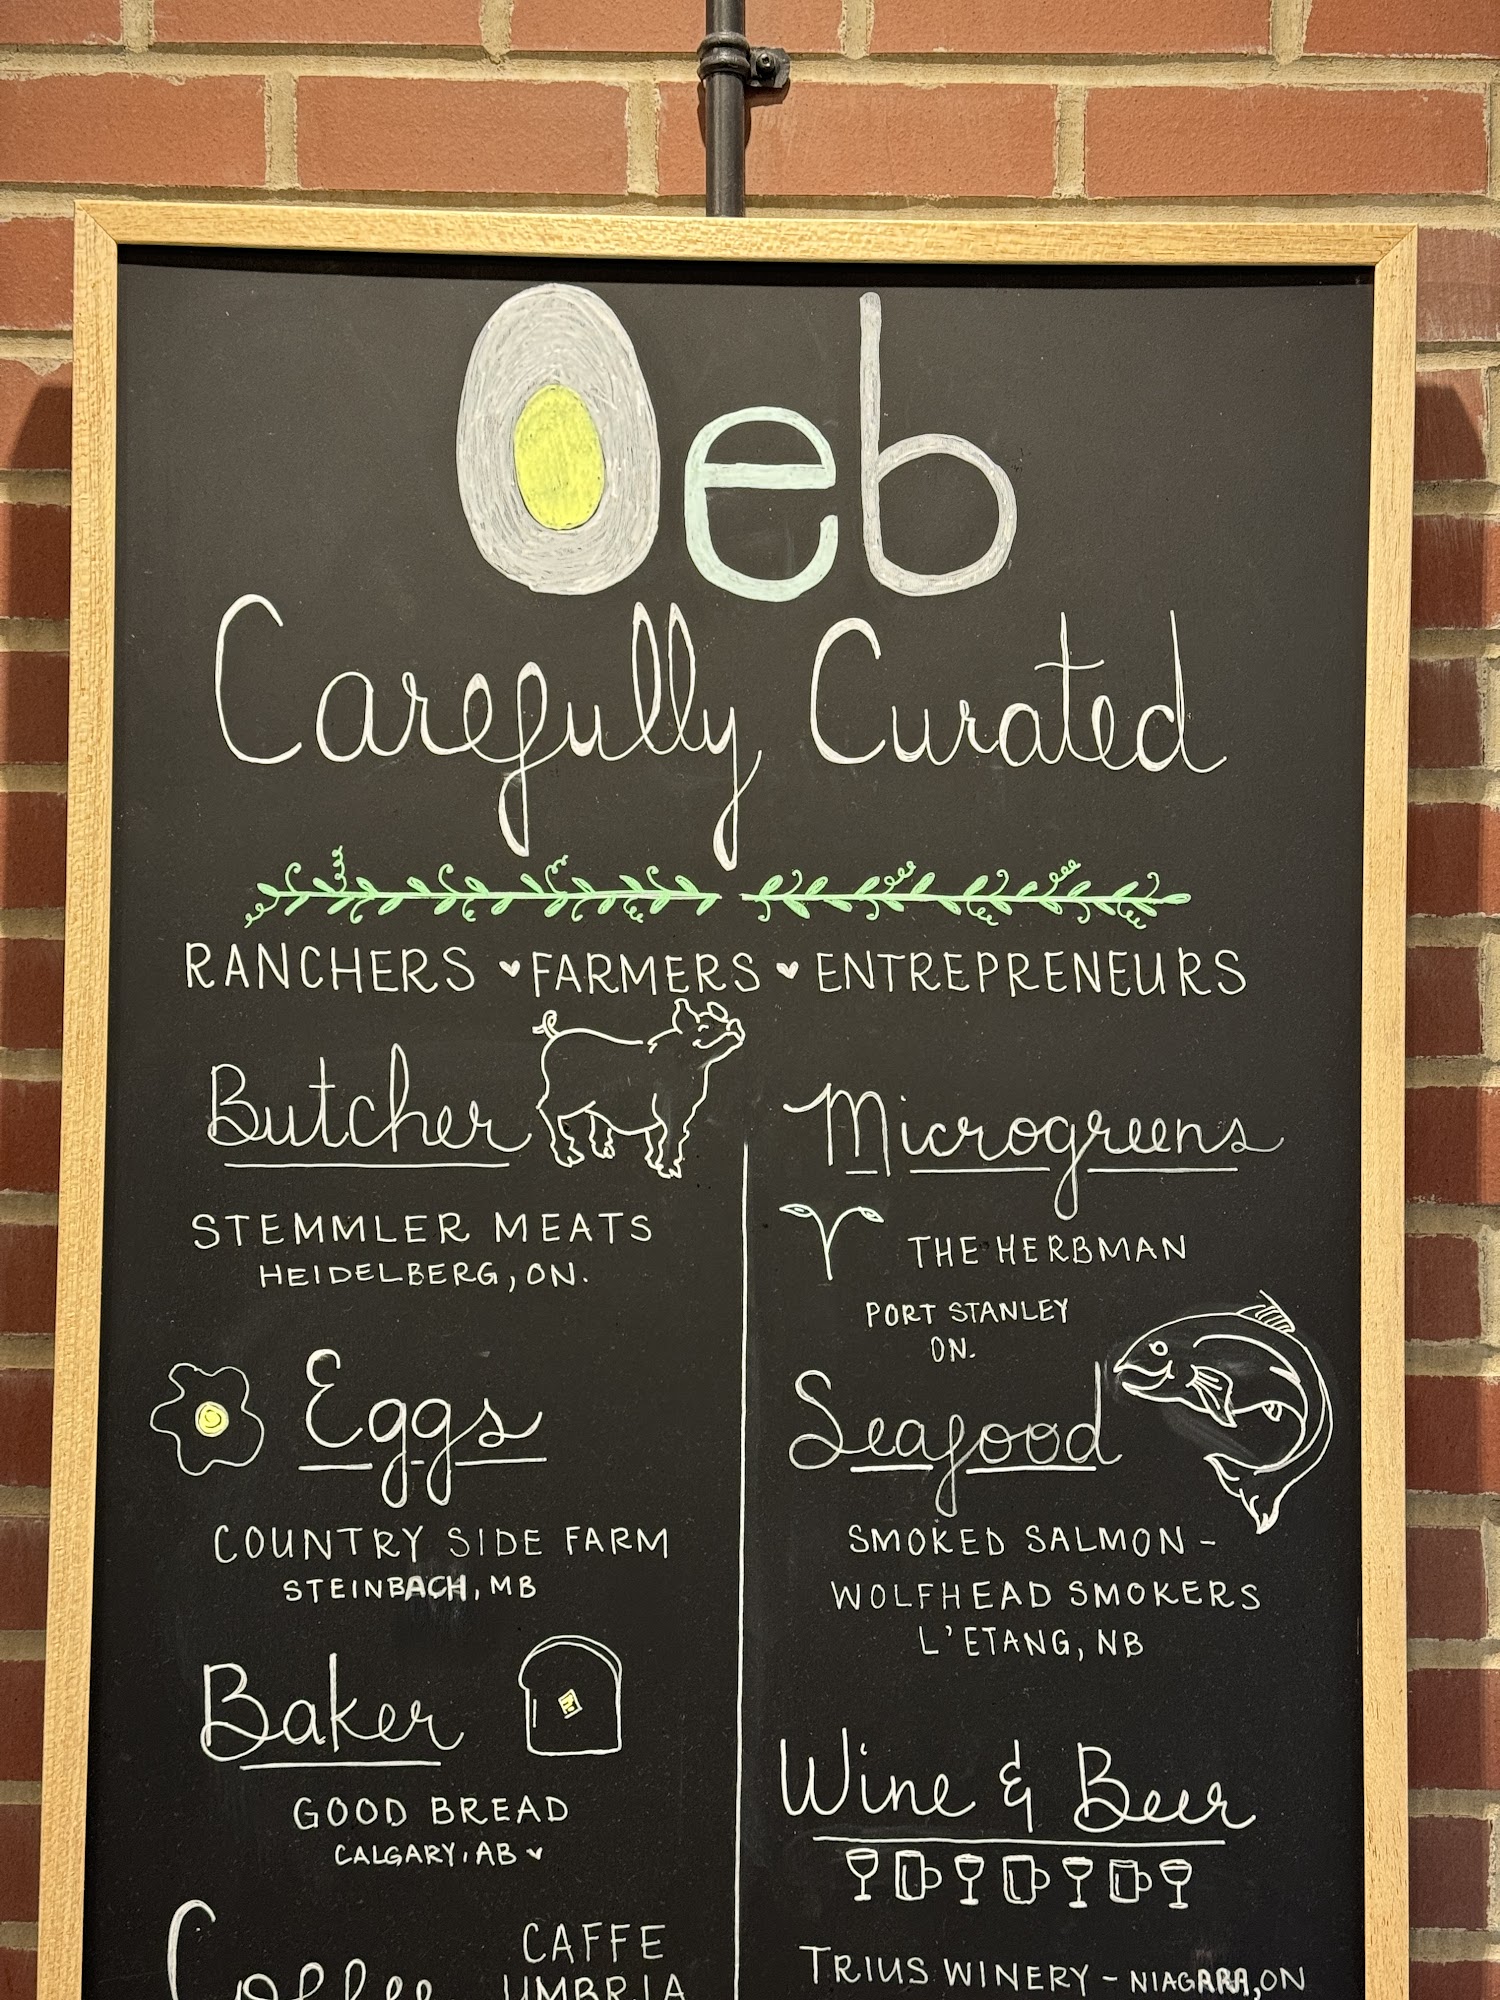 Oeb
Carefully Curated
RANCHERS ♥ FARMERS ♥ ENTREPRENEURS
Butcher
STEMMLER MEATS
HEIDELBERG, ON.
Eggs
COUNTRY SIDE FARM
STEINBACH, MB
Baker
GOOD BREAD
CALGARY, AB ♥
Coffee
CAFFE
UMBRIA
Microgreens
THE HERBMAN
PORT STANLEY
ON.
Seafood
SMOKED SALMON -
WOLFHEAD SMOKERS
L'ETANG, NB
Wine & Beer
TRIUS WINERY - NIAGARA, ON